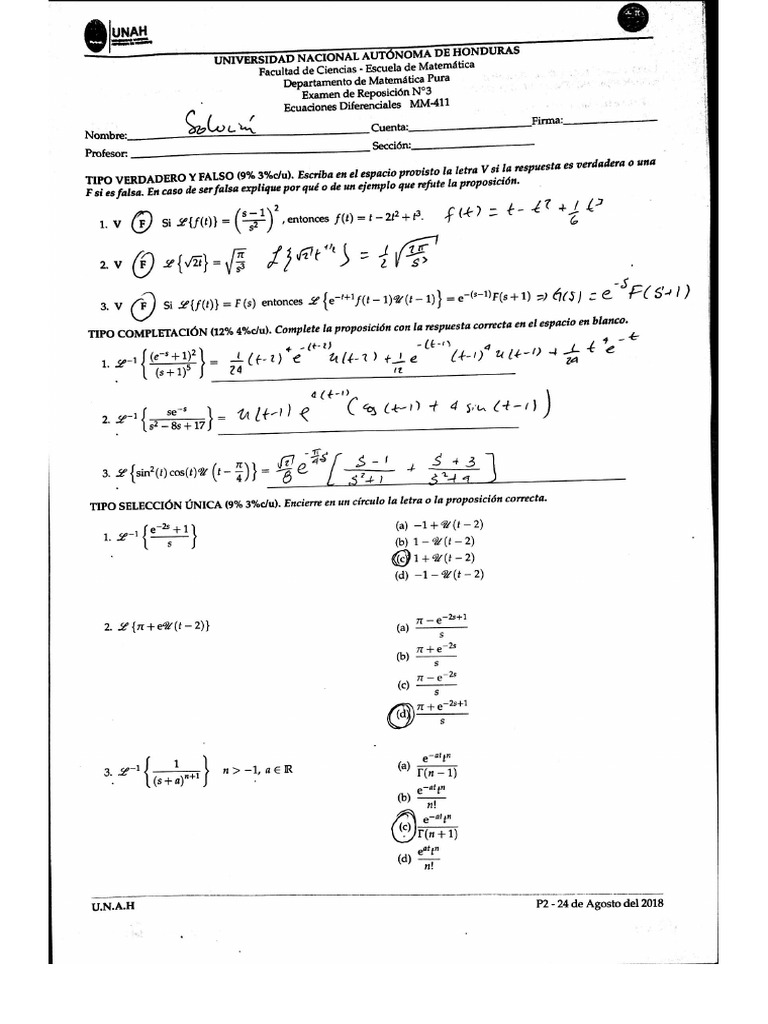 UNAH
UNIVERSIDAD NACIONAL AUTÓNOMA DE HONDURAS
Facultad de Ciencias - Escuela de Matemática
Departamento de Matemática Pura
Examen de Reposición N°3
Ecuaciones Diferenciales MM-411
Nombre: Solución Cuenta: Firma:
Profesor: Sección:
TIPO VERDADERO Y FALSO (9% 3%c/u). Escriba en el espacio provisto la letra V si la respuesta es verdadera o una
F si es falsa. En caso de ser falsa explique por qué o de un ejemplo que refute la proposición.
1. V F Si ℒ{f(t)} = ((s−1)/s²)², entonces f(t) = t − 2t² + t³. f(t) = t − t² + 1/6 t³
2. V F ℒ{√2t} = √(π/s³) ℒ{√2 t^(1/2)} = 1/2 √(2π/s³)
3. V F Si ℒ{f(t)} = F(s) entonces ℒ{e^(−t+1) f(t−1)𝒰(t−1)} = e^(−(s−1))F(s+1) ⇒ G(s) = e^(−s) F(s+1)
TIPO COMPLETACIÓN (12% 4%c/u). Complete la proposición con la respuesta correcta en el espacio en blanco.
1. ℒ⁻¹{(e^(−s)+1)²/(s+1)⁵} = 1/24 (t−2)⁴ e^(−(t−2)) u(t−2) + 1/12 e^(−(t−1)) (t−1)⁴ u(t−1) + 1/24 t⁴ e^(−t)
2. ℒ⁻¹{se^(−s)/(s²−8s+17)} = u(t−1) e^(4(t−1)) (cos(t−1) + 4 sin(t−1))
3. ℒ{sin²(t) cos(t)𝒰(t − π/4)} = √2/8 e^(−π/4 s) [(s−1)/(s²+1) + (s+3)/(s²+9)]
TIPO SELECCIÓN ÚNICA (9% 3%c/u). Encierre en un círculo la letra o la proposición correcta.
1. ℒ⁻¹{(e^(−2s)+1)/s}
(a) −1 + 𝒰(t − 2)
(b) 1 − 𝒰(t − 2)
(c) 1 + 𝒰(t − 2)
(d) −1 − 𝒰(t − 2)
2. ℒ{π + e𝒰(t − 2)}
(a) (π − e^(−2s+1))/s
(b) (π + e^(−2s))/s
(c) (π − e^(−2s))/s
(d) (π + e^(−2s+1))/s
3. ℒ⁻¹{1/(s+a)^(n+1)} n > −1, a ∈ ℝ
(a) e^(−at)tⁿ/Γ(n − 1)
(b) e^(−at)tⁿ/n!
(c) e^(−at)tⁿ/Γ(n + 1)
(d) e^(at)tⁿ/n!
U.N.A.H P2 - 24 de Agosto del 2018